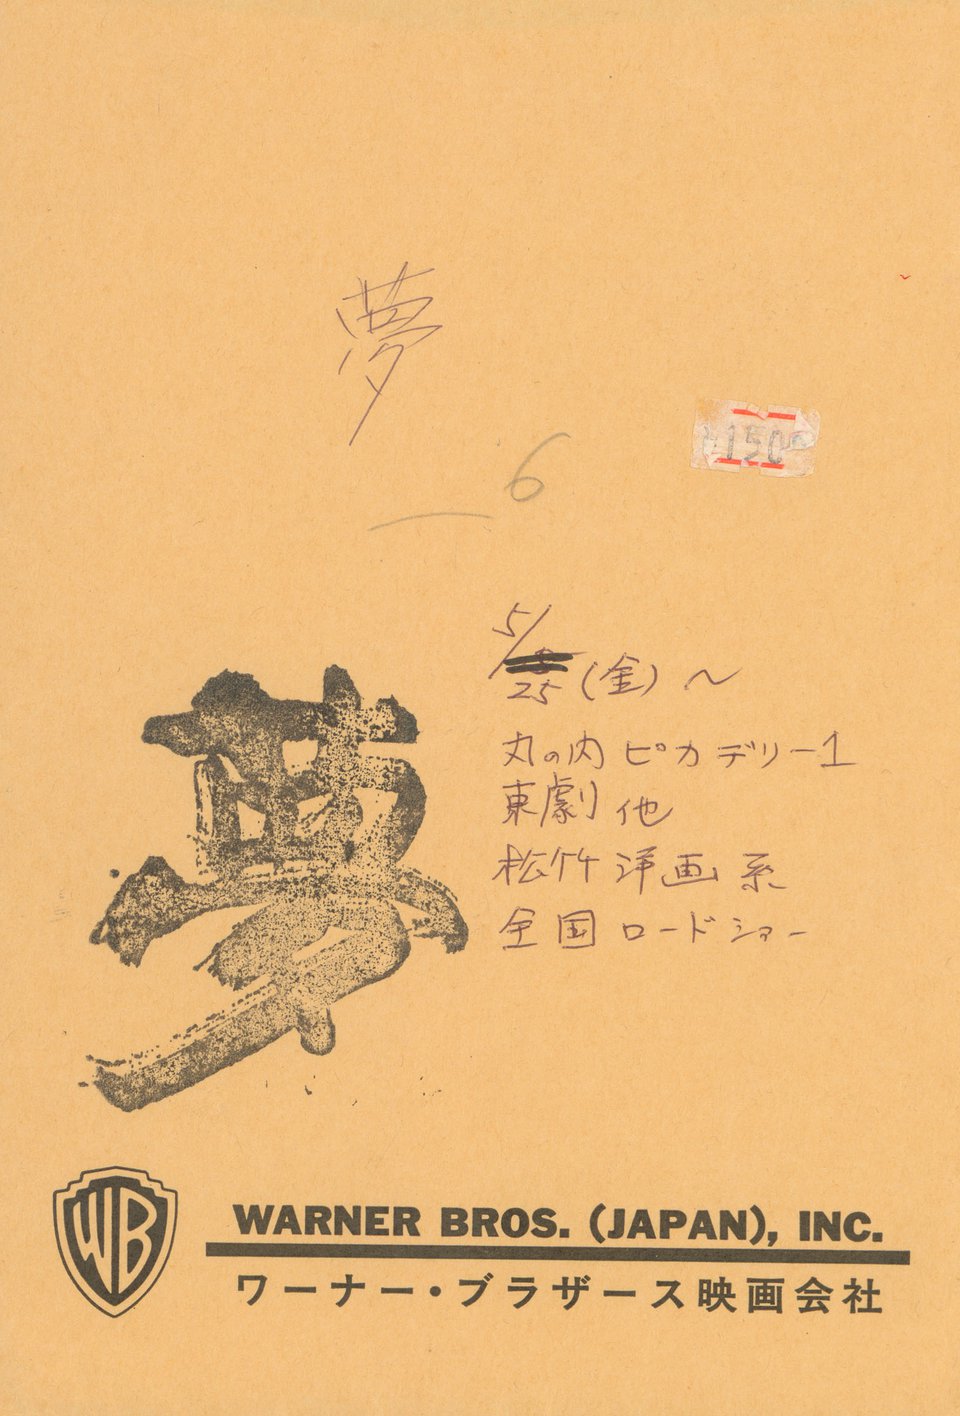 夢
6
150
5/25(金)〜
丸の内ピカデリー1
東劇 他
松竹洋画系
全国ロードショー
夢
WB
WARNER BROS. (JAPAN), INC.
ワーナー・ブラザース映画会社